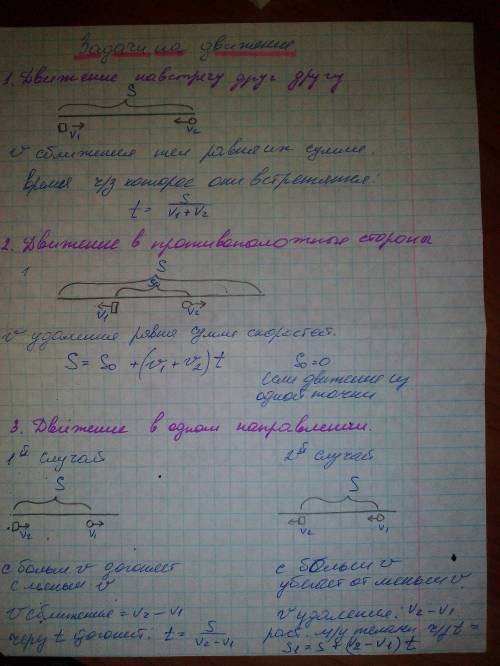 Задачи на движение
1. Движение навстречу друг другу
S
V₁ V₂
v сближения тел равна их сумме.
Время ч/з которое они встретятся:
t = S/(V₁ + V₂)
2. Движение в противоположные стороны
1
S
S₀
V₁ V₂
v удаления равна сумме скоростей.
S = S₀ + (v₁ + v₂) t
S₀ = 0
если движение из
одной точки
3. Движение в одном направлении.
1й случай
S
V₂ V₁
с больш v догоняет
с меньш v
v сближения = V₂ − V₁
через t догонит: t = S/(V₂ − V₁)
2й случай
S
V₂ V₁
с больш v
убегает от меньш v
v удаления: V₂ − V₁
раст. м/у телами ч/з t =
S₁ = S + (V₂ − V₁) t